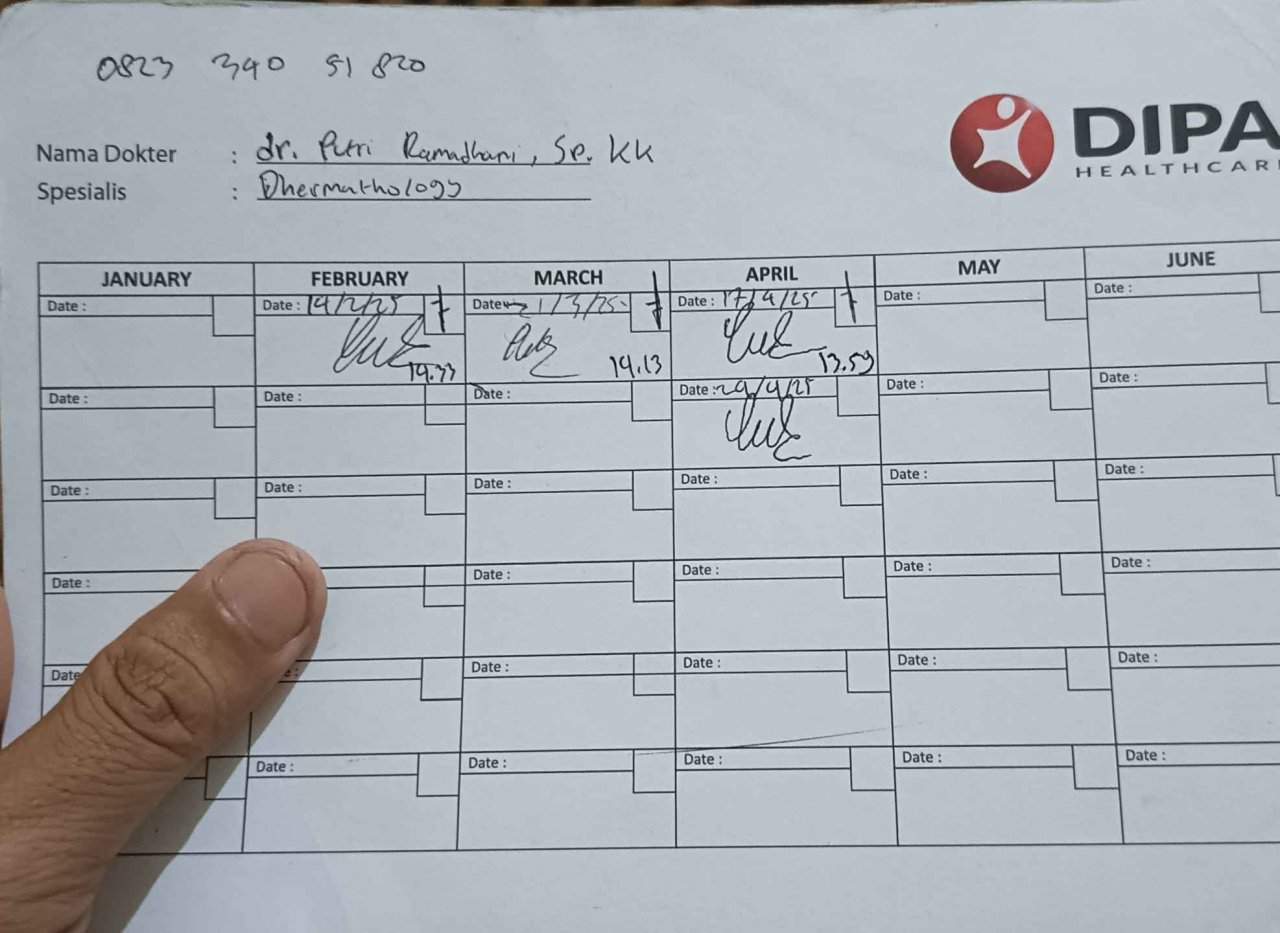 0823 340 51 820
DIPA
HEALTHCAR
Nama Dokter : dr. Putri Ramadhani, Sp. KK
Spesialis : Dhermathology
JANUARY FEBRUARY MARCH APRIL MAY JUNE
Date : Date : 14/2/25 Date : 21/3/25 Date : 17/4/25 Date : Date :
14.33 14.13 13.59
Date : Date : Date : Date : 29/4/25 Date : Date :
Date : Date : Date : Date : Date : Date :
Date : Date : Date : Date : Date :
Date Date : Date : Date : Date :
Date : Date : Date : Date : Date :